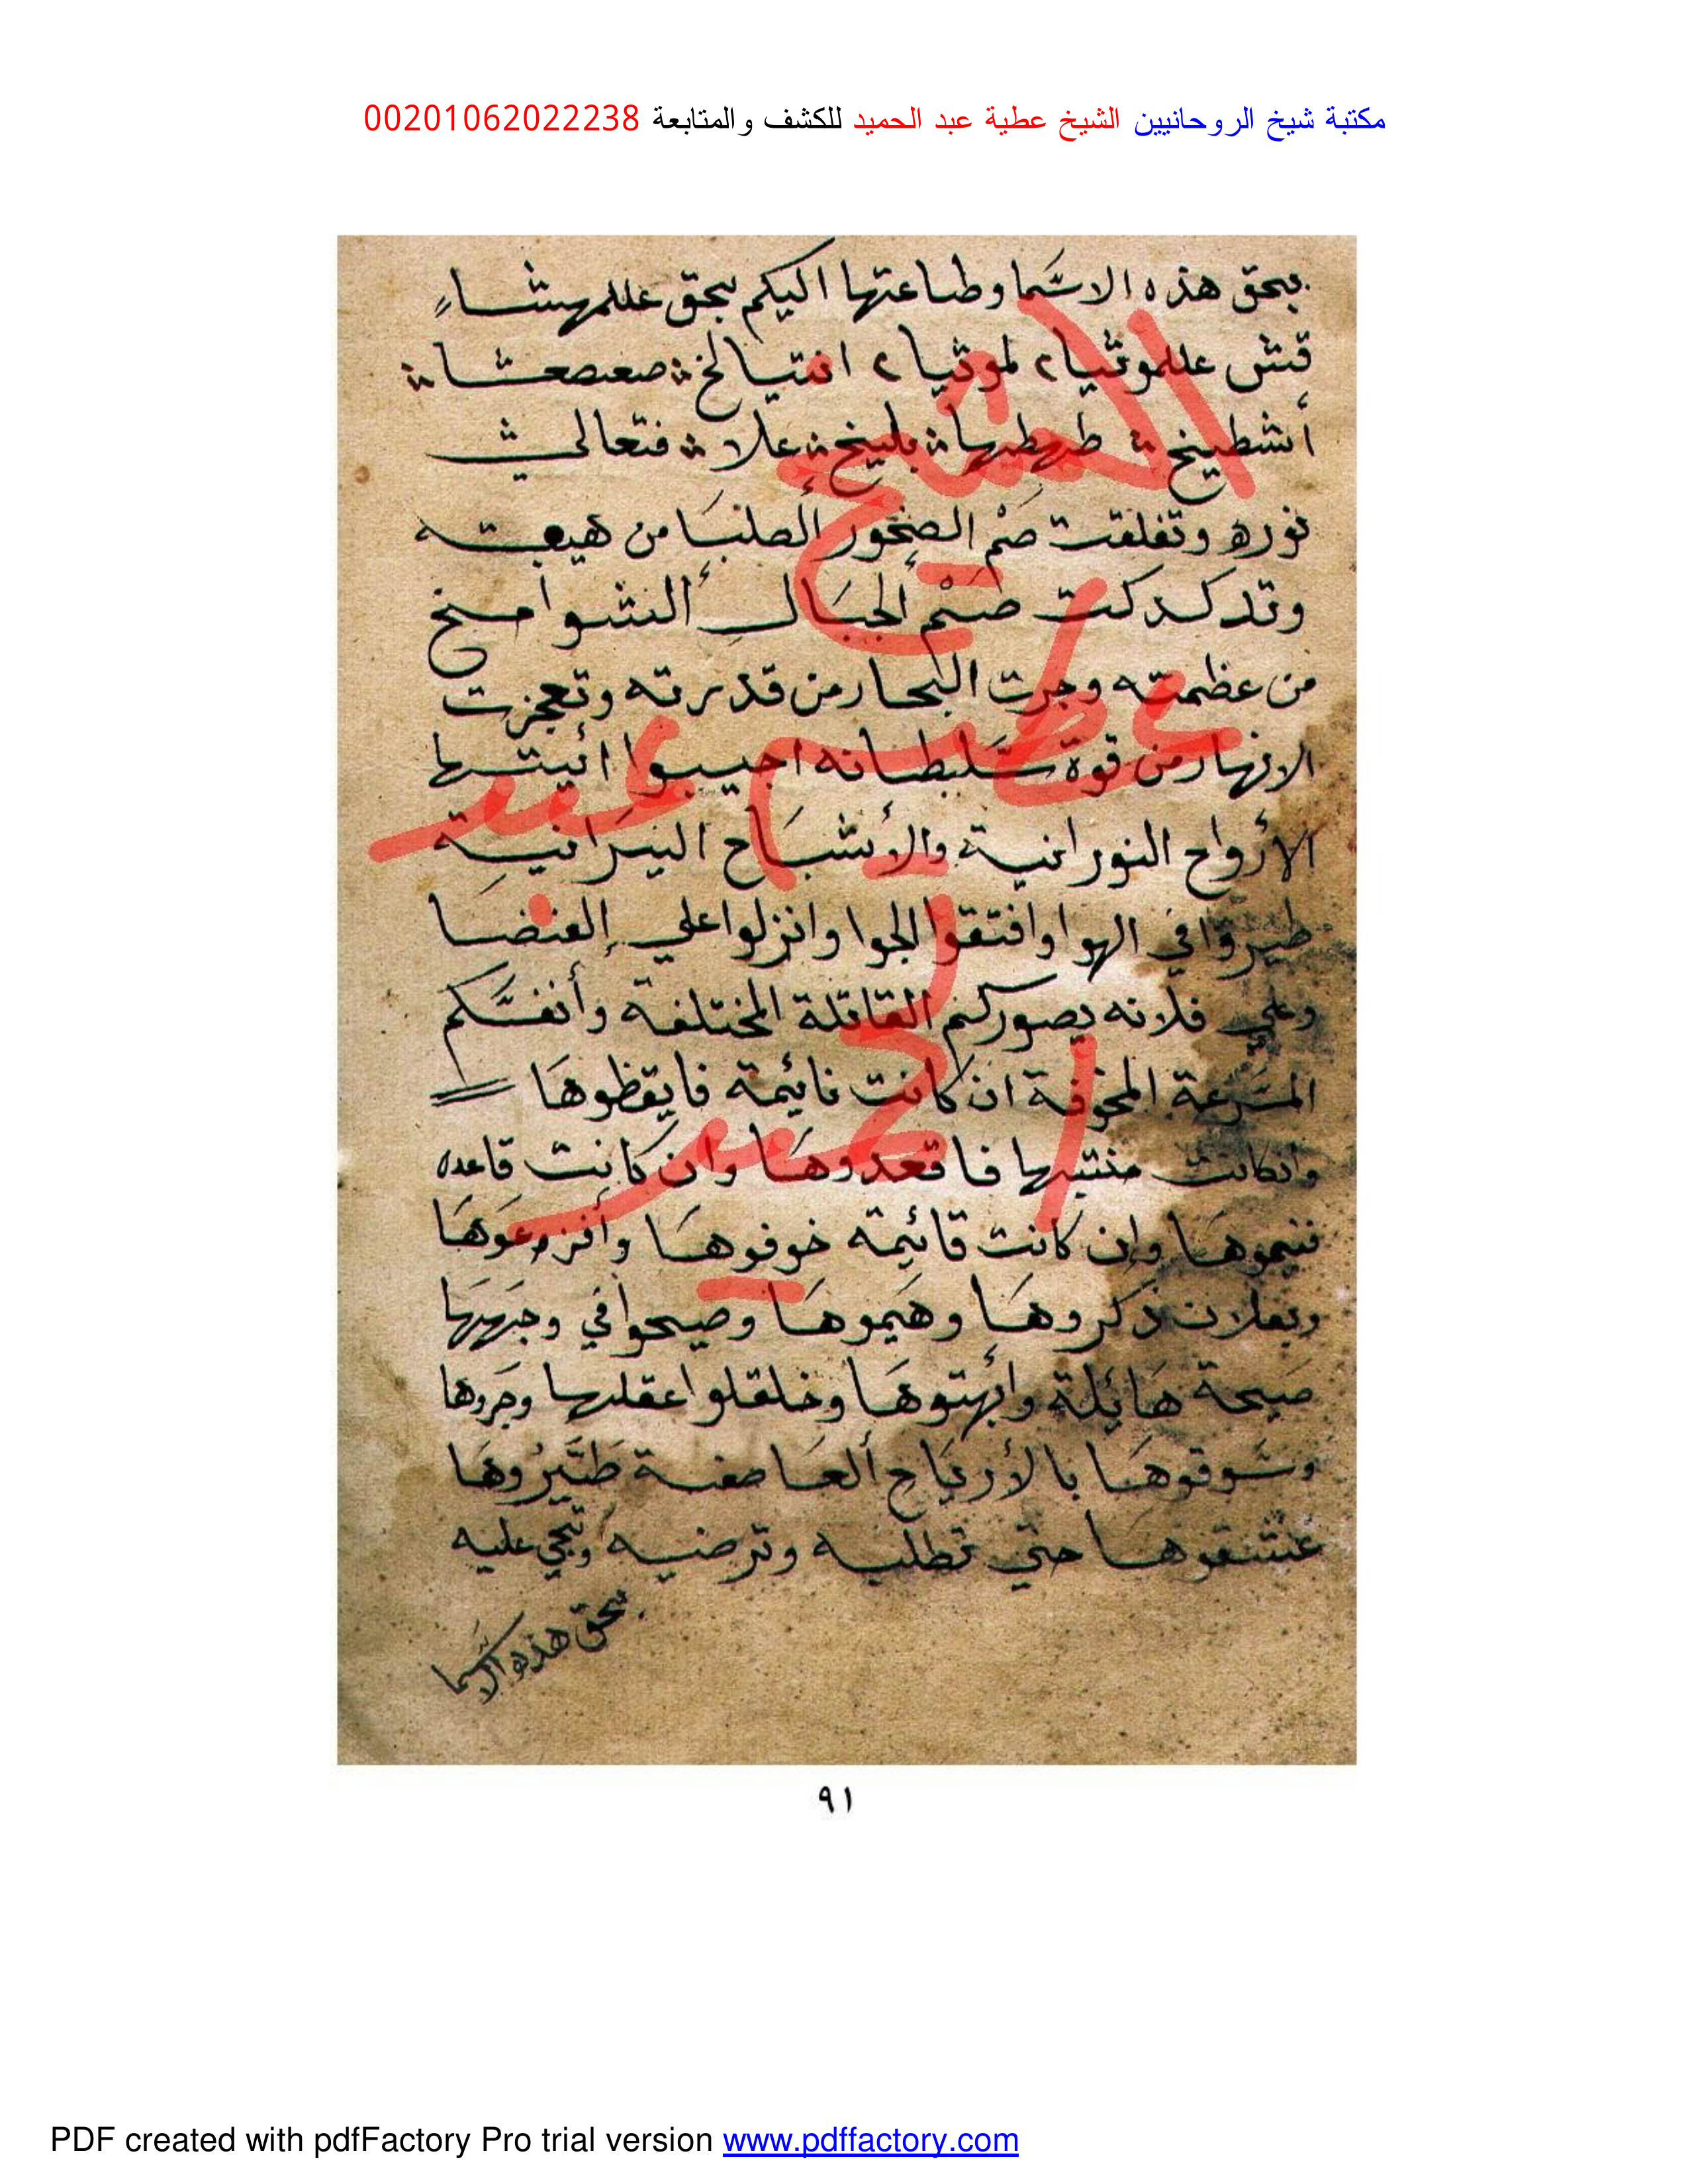 مكتبة شيخ الروحانيين الشيخ عطية عبد الحميد للكشف والمتابعة 00201062022238
بحق هذه الاسما وطاعتها اليكم بحق عللمهشاء
قتش عللموثيا ٢ لموثيا ٢ انتيالخ صعصعثا
أنشطيخ طهطهطيها بليخ علا فتعالى
نوره وتفلقت صم الصخور الصلبا من هيبته
وتدكدكت صم الجبال الشوامخ
من عظمته وجرت البحار من قدرته وتعجزت
الانهار من قوة سلطانه اجيبوا ائيتها
الأرواح النورانية والأشباح النيرانية
طيروا في الهوا وافتقوا الجوا وانزلوا على
وعلى فلانه بصوركم القاتلة المختلفة وأنفسكم
المسرعة المخوفة ان كانت نائيمة فايقظوها
وانكانت منتبها فاقعدوها وان كانت قاعده
وإن كانت قائيمة خوفوها وأفزعوها
ذكروها وهيموها وصيحوا في وجهها
صيحة هائلة وابهتوها وخلقلوا عقلها وجروها
وسوقوها بالأرياح العاصفة طيروها
عشقوها حتى تطلبه وترضيه وتجي عليه
بحق هذه الاسما
الشيخ
عطية عبد
الحميد
٩١
PDF created with pdfFactory Pro trial version www.pdffactory.com